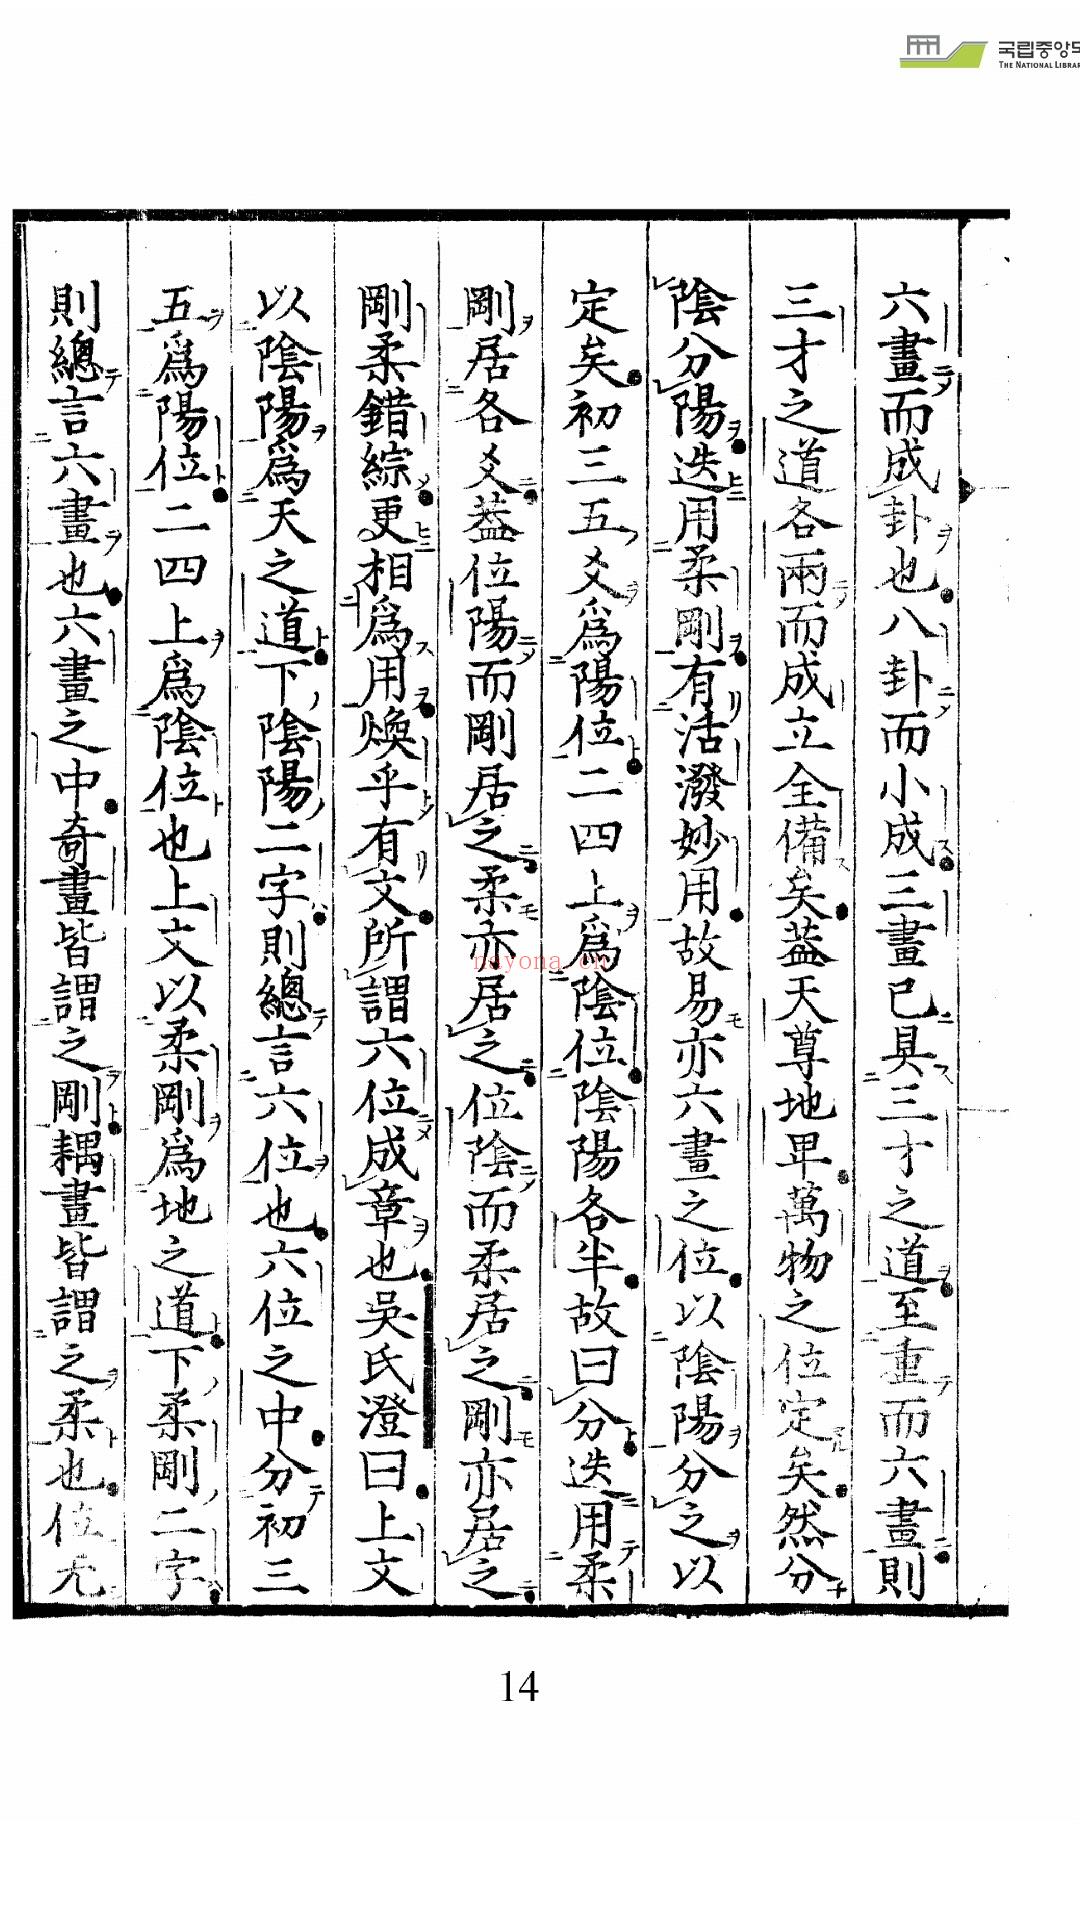 국립중앙도
THE NATIONAL LIBRAR
六畫而成卦也八卦而小成三畫已具三才之道至重而六畫則
三才之道各兩而成立全備矣葢天尊地卑萬物之位定矣然分
陰分陽迭用柔剛有活潑妙用故易亦六畫之位以陰陽分之以
定矣初三五爻爲陽位二四上爲陰位陰陽各半故曰分迭用柔
剛居各爻葢位陽而剛居之柔亦居之位陰而柔居之剛亦居之
剛柔錯綜更相爲用煥乎有文所謂六位成章也吳氏澄曰上文
以陰陽爲天之道下陰陽二字則總言六位也六位之中分初三
五爲陽位二四上爲陰位也上文以柔剛爲地之道下柔剛二字
則總言六畫也六畫之中奇畫皆謂之剛耦畫皆謂之柔也位无
nayona.cn
14